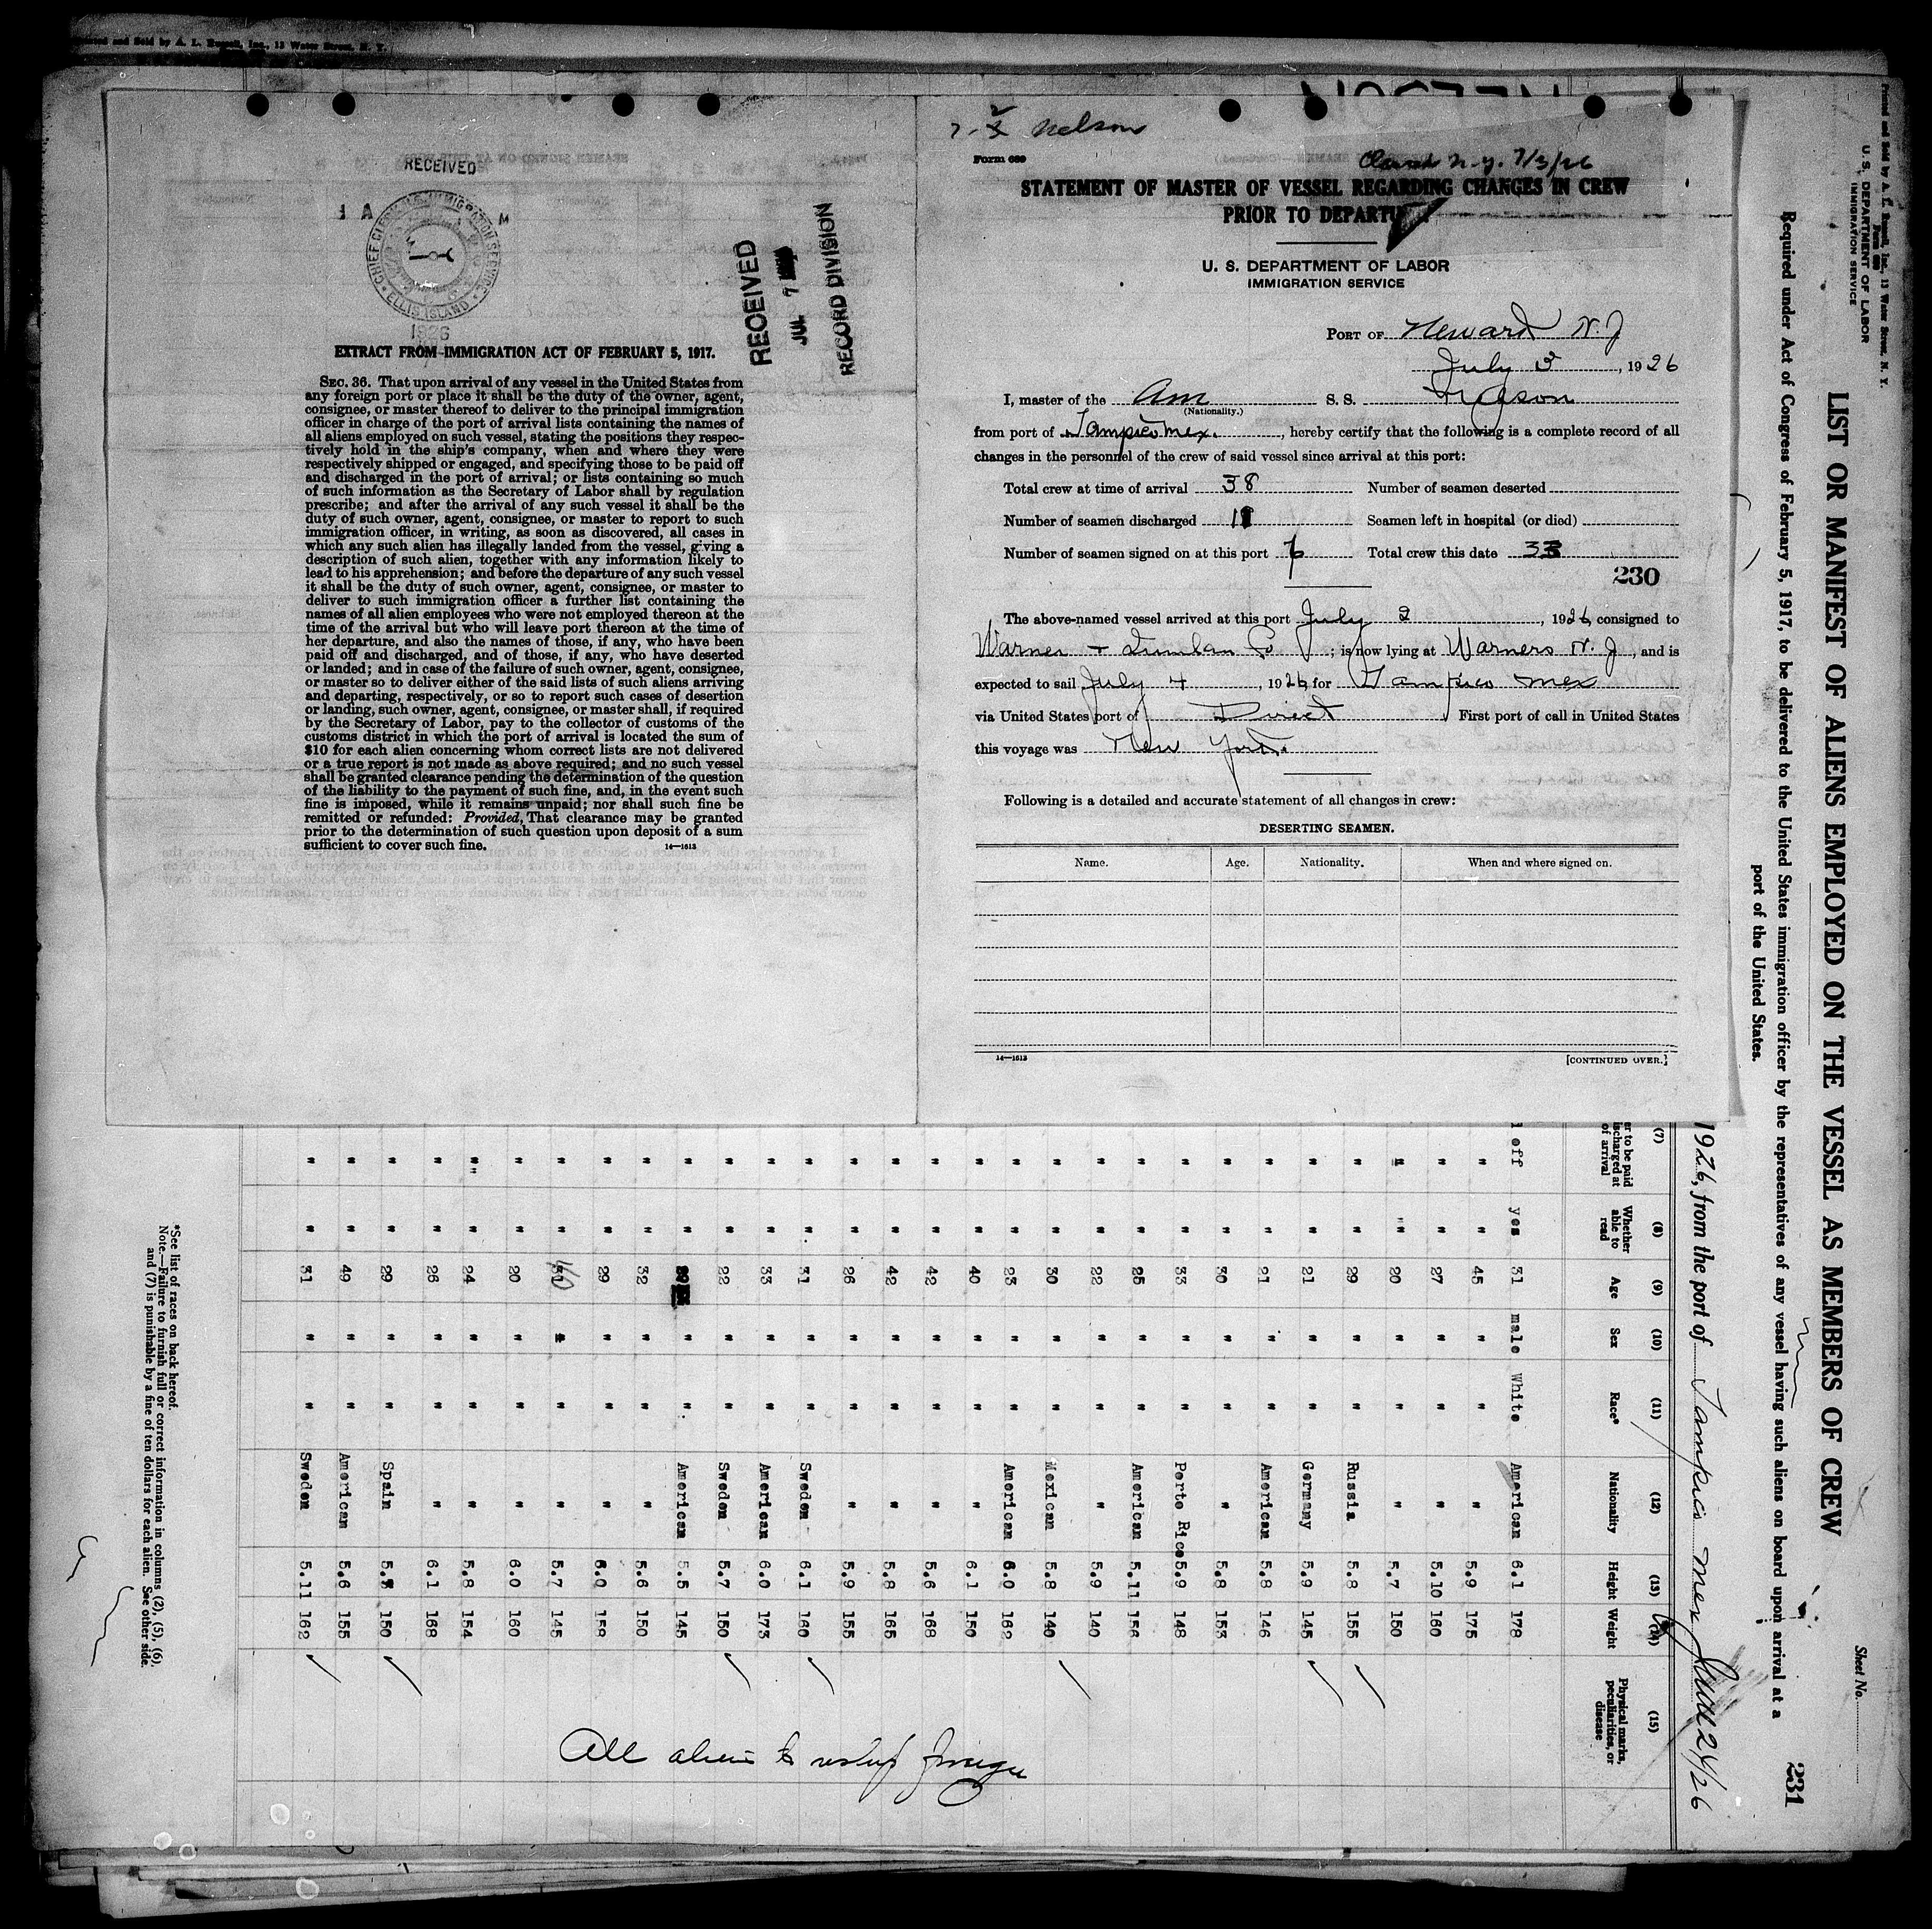 RECEIVED
CHIEF CLERK U.S. IMMIGRATION SERVICE
ELLIS ISLAND
1926
RECEIVED
JUL 7
RECORD DIVISION
EXTRACT FROM IMMIGRATION ACT OF FEBRUARY 5, 1917.
SEC. 36. That upon arrival of any vessel in the United States from
any foreign port or place it shall be the duty of the owner, agent,
consignee, or master thereof to deliver to the principal immigration
officer in charge of the port of arrival lists containing the names of
all aliens employed on such vessel, stating the positions they respec-
tively hold in the ship's company, when and where they were
respectively shipped or engaged, and specifying those to be paid off
and discharged in the port of arrival; or lists containing so much
of such information as the Secretary of Labor shall by regulation
prescribe; and after the arrival of any such vessel it shall be the
duty of such owner, agent, consignee, or master to report to such
immigration officer, in writing, as soon as discovered, all cases in
which any such alien has illegally landed from the vessel, giving a
description of such alien, together with any information likely to
lead to his apprehension; and before the departure of any such vessel
it shall be the duty of such owner, agent, consignee, or master to
deliver to such immigration officer a further list containing the
names of all alien employees who were not employed thereon at the
time of the arrival but who will leave port thereon at the time of
her departure, and also the names of those, if any, who have been
paid off and discharged, and of those, if any, who have deserted
or landed; and in case of the failure of such owner, agent, consignee,
or master so to deliver either of the said lists of such aliens arriving
and departing, respectively, or so to report such cases of desertion
or landing, such owner, agent, consignee, or master shall, if required
by the Secretary of Labor, pay to the collector of customs of the
customs district in which the port of arrival is located the sum of
$10 for each alien concerning whom correct lists are not delivered
or a true report is not made as above required; and no such vessel
shall be granted clearance pending the determination of the question
of the liability to the payment of such fine, and, in the event such
fine is imposed, while it remains unpaid; nor shall such fine be
remitted or refunded: Provided, That clearance may be granted
prior to the determination of such question upon deposit of a sum
sufficient to cover such fine.
14—1613
Nelson
Form 689
N.Y. 7/3/26
STATEMENT OF MASTER OF VESSEL REGARDING CHANGES IN CREW
PRIOR TO DEPARTU
U. S. DEPARTMENT OF LABOR
IMMIGRATION SERVICE
PORT OF Newark N.J
July 3, 1926
I, master of the Am S. S.
(Nationality.)
from port of Tampico Mex., hereby certify that the following is a complete record of all
changes in the personnel of the crew of said vessel since arrival at this port:
Total crew at time of arrival 38 Number of seamen deserted
Number of seamen discharged 11 Seamen left in hospital (or died)
Number of seamen signed on at this port 6 Total crew this date 33
230
The above-named vessel arrived at this port July 2, 1926, consigned to
Warner + Co; is now lying at Warners N.J, and is
expected to sail July 4, 1926, for Tampico Mex
via United States port of Direct First port of call in United States
this voyage was New York.
Following is a detailed and accurate statement of all changes in crew:
DESERTING SEAMEN.
Name. Age. Nationality. When and where signed on.
14—1613 [CONTINUED OVER.]
Printed and Sold by A. L. Russell, Inc., 13 Water Street, N. Y.
U. S. DEPARTMENT OF LABOR
IMMIGRATION SERVICE
Sheet No.
LIST OR MANIFEST OF ALIENS EMPLOYED ON THE VESSEL AS MEMBERS OF CREW
231
Required under Act of Congress of February 5, 1917, to be delivered to the United States immigration officer by the representatives of any vessel having such aliens on board upon arrival at a
port of the United States.
1926, from the port of Tampico Mex June 24/26
(7) (8) (9) (10) (11) (12) (13) (14) (15)
er to be paid
ischarged at
of arrival
Whether
able to
read
Age
Sex
Race*
Nationality
Height
Weight
Physical marks,
peculiarities, or
disease
l off yes 31 male White American 6.1 178
" " 45 " " " 5.9 175
" " 27 " " " 5.10 160
" " 20 " " " 5.7 150
" " 29 " " Russia 5.8 155
" " 21 " " Germany 5.9 145
" " 21 " " American 5.8 146
" " 30 " " " 5.8 153
" " 33 " " Porto Rico 5.9 148
" " 25 " " American 5.11 156
" " 22 " " " 5.9 140
" " 30 " " Mexican 5.8 140
" " 23 " " American 6.0 162
" " 40 " " " 6.1 150
" " 42 " " " 5.6 168
" " 42 " " " 5.8 165
" " 26 " " " 5.9 155
" " 31 " " Sweden 6.1 160
" " 33 " " American 6.0 173
" " 22 " " Sweden 5.7 150
" " " " American 5.5 145
" " 32 " " " 5.6 150
" " 29 " " " 6.0 158
" " 40 " " " 5.7 145
" " 20 " " " 6.0 160
" " 24 " " " 5.8 154
" " 26 " " " 6.1 168
" " 29 " " Spain 5. 150
" " 49 " " American 5.6 155
" " 31 " " Sweden 5.11 162
All aliens to reship foreign
*See list of races on back hereof.
Note.—Failure to furnish full or correct information in columns (2), (5), (6),
and (7) is punishable by a fine of ten dollars for each alien. See other side.